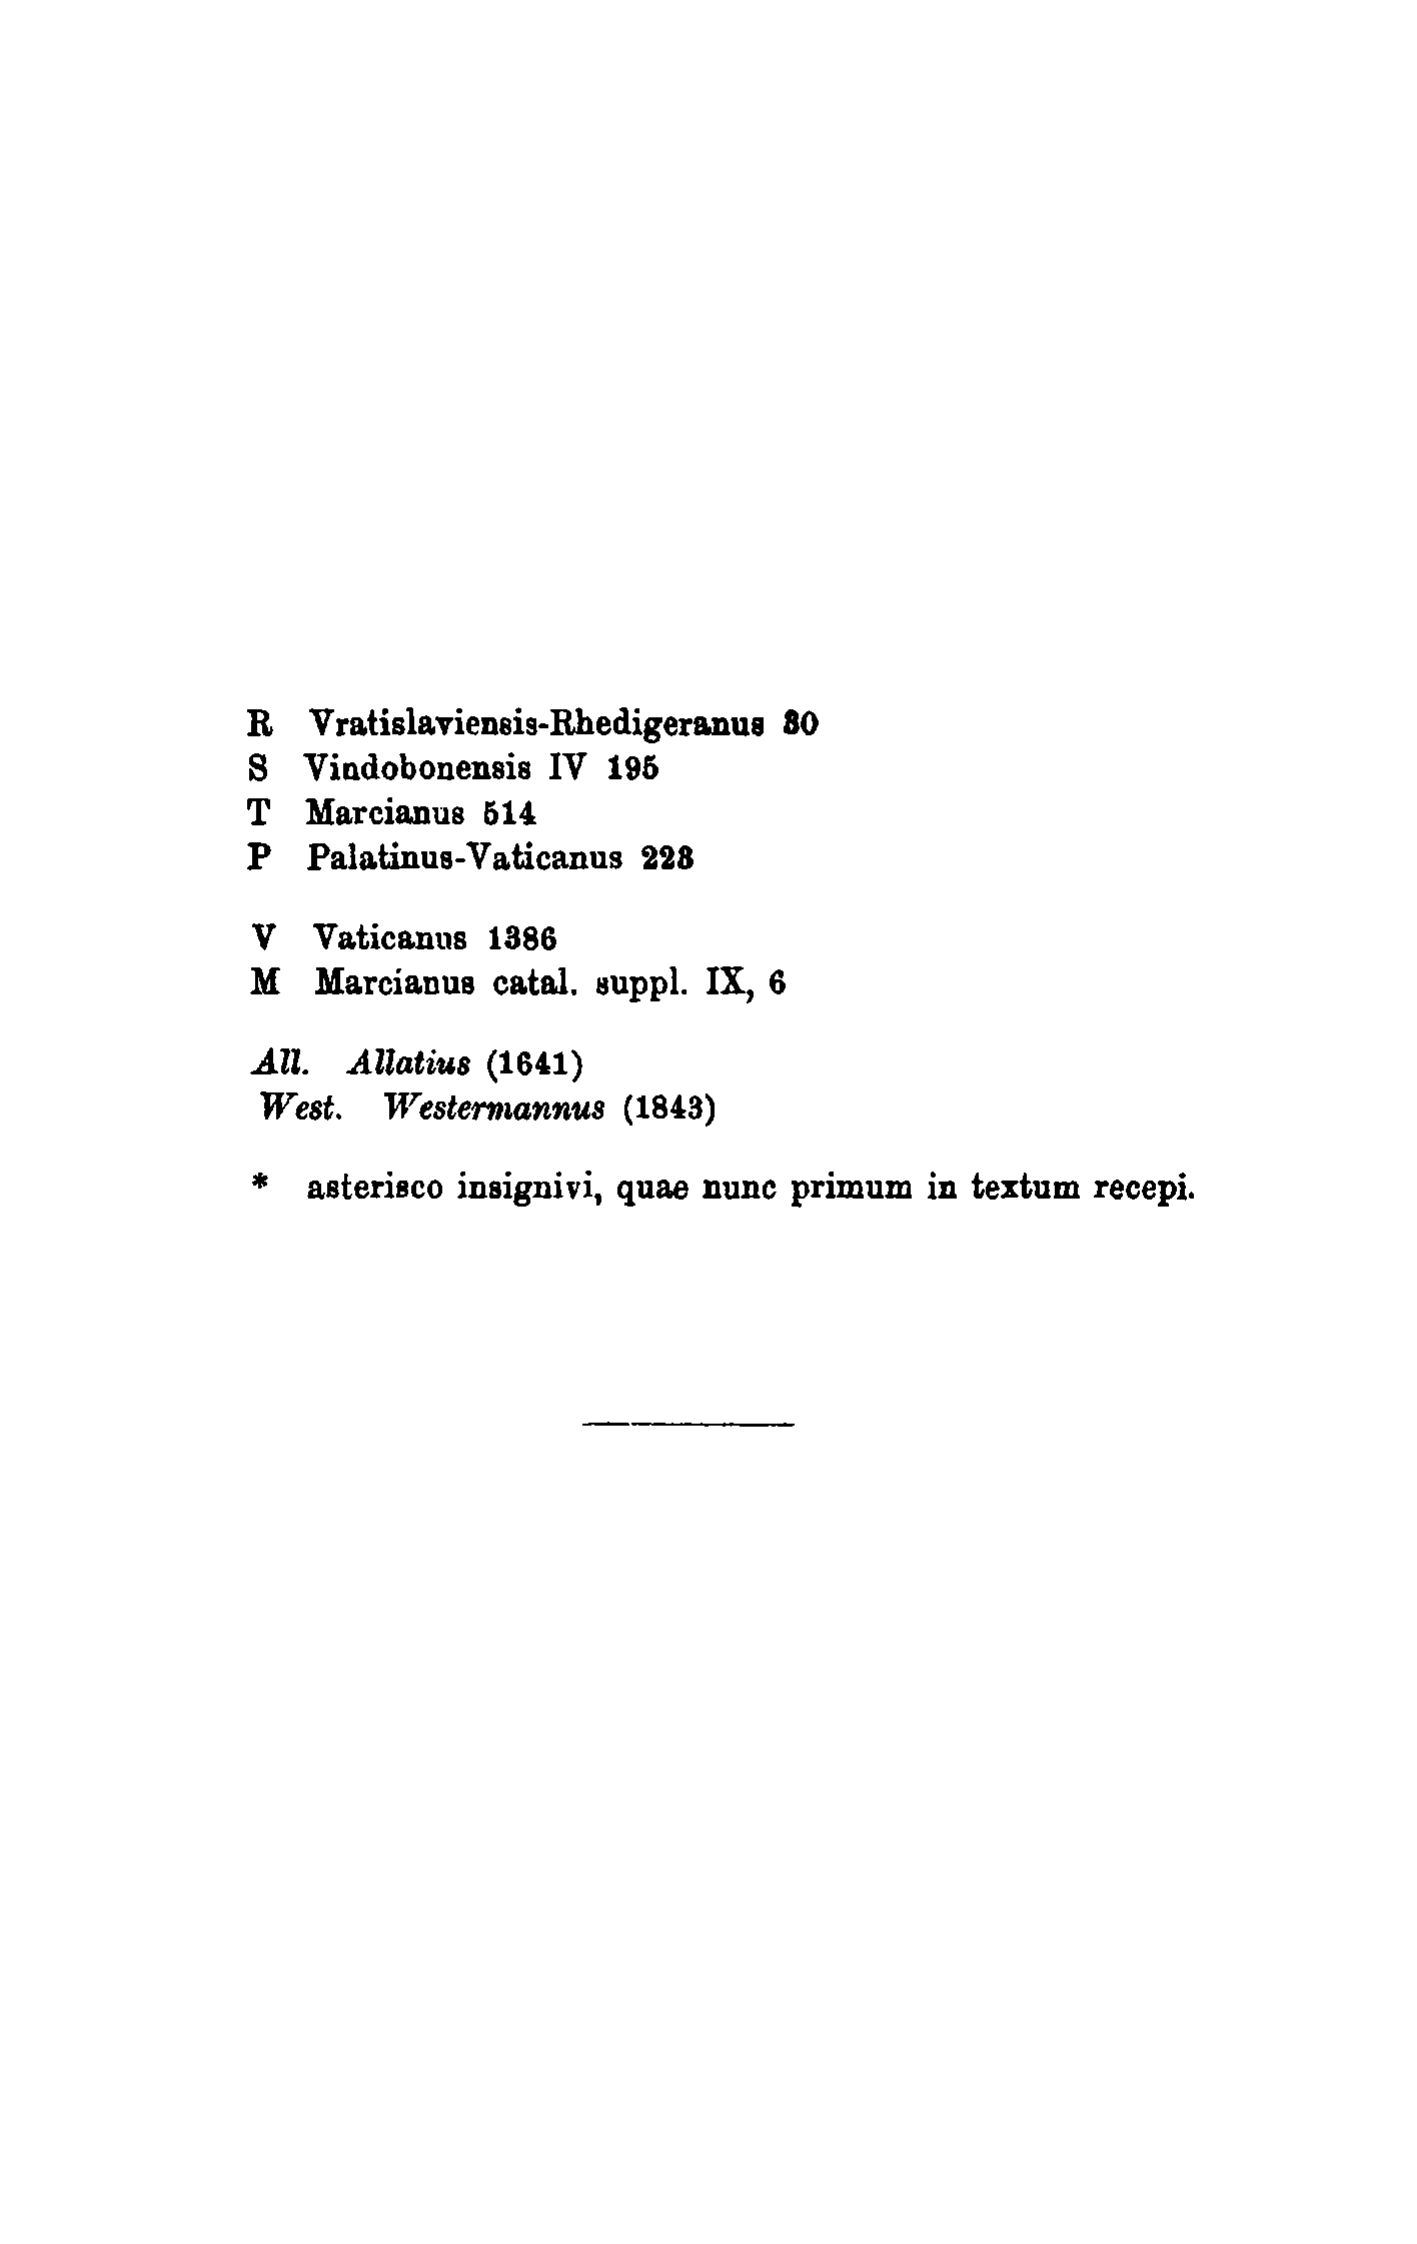 R Vratislaviensis-Rhedigeranus 30
S Vindobonensis IV 195
T Marcianus 514
P Palatinus-Vaticanus 223
V Vaticanus 1386
M Marcianus catal. suppl. IX, 6
All. Allatius (1641)
West. Westermannus (1843)
* asterisco insignivi, quae nunc primum in textum recepi.